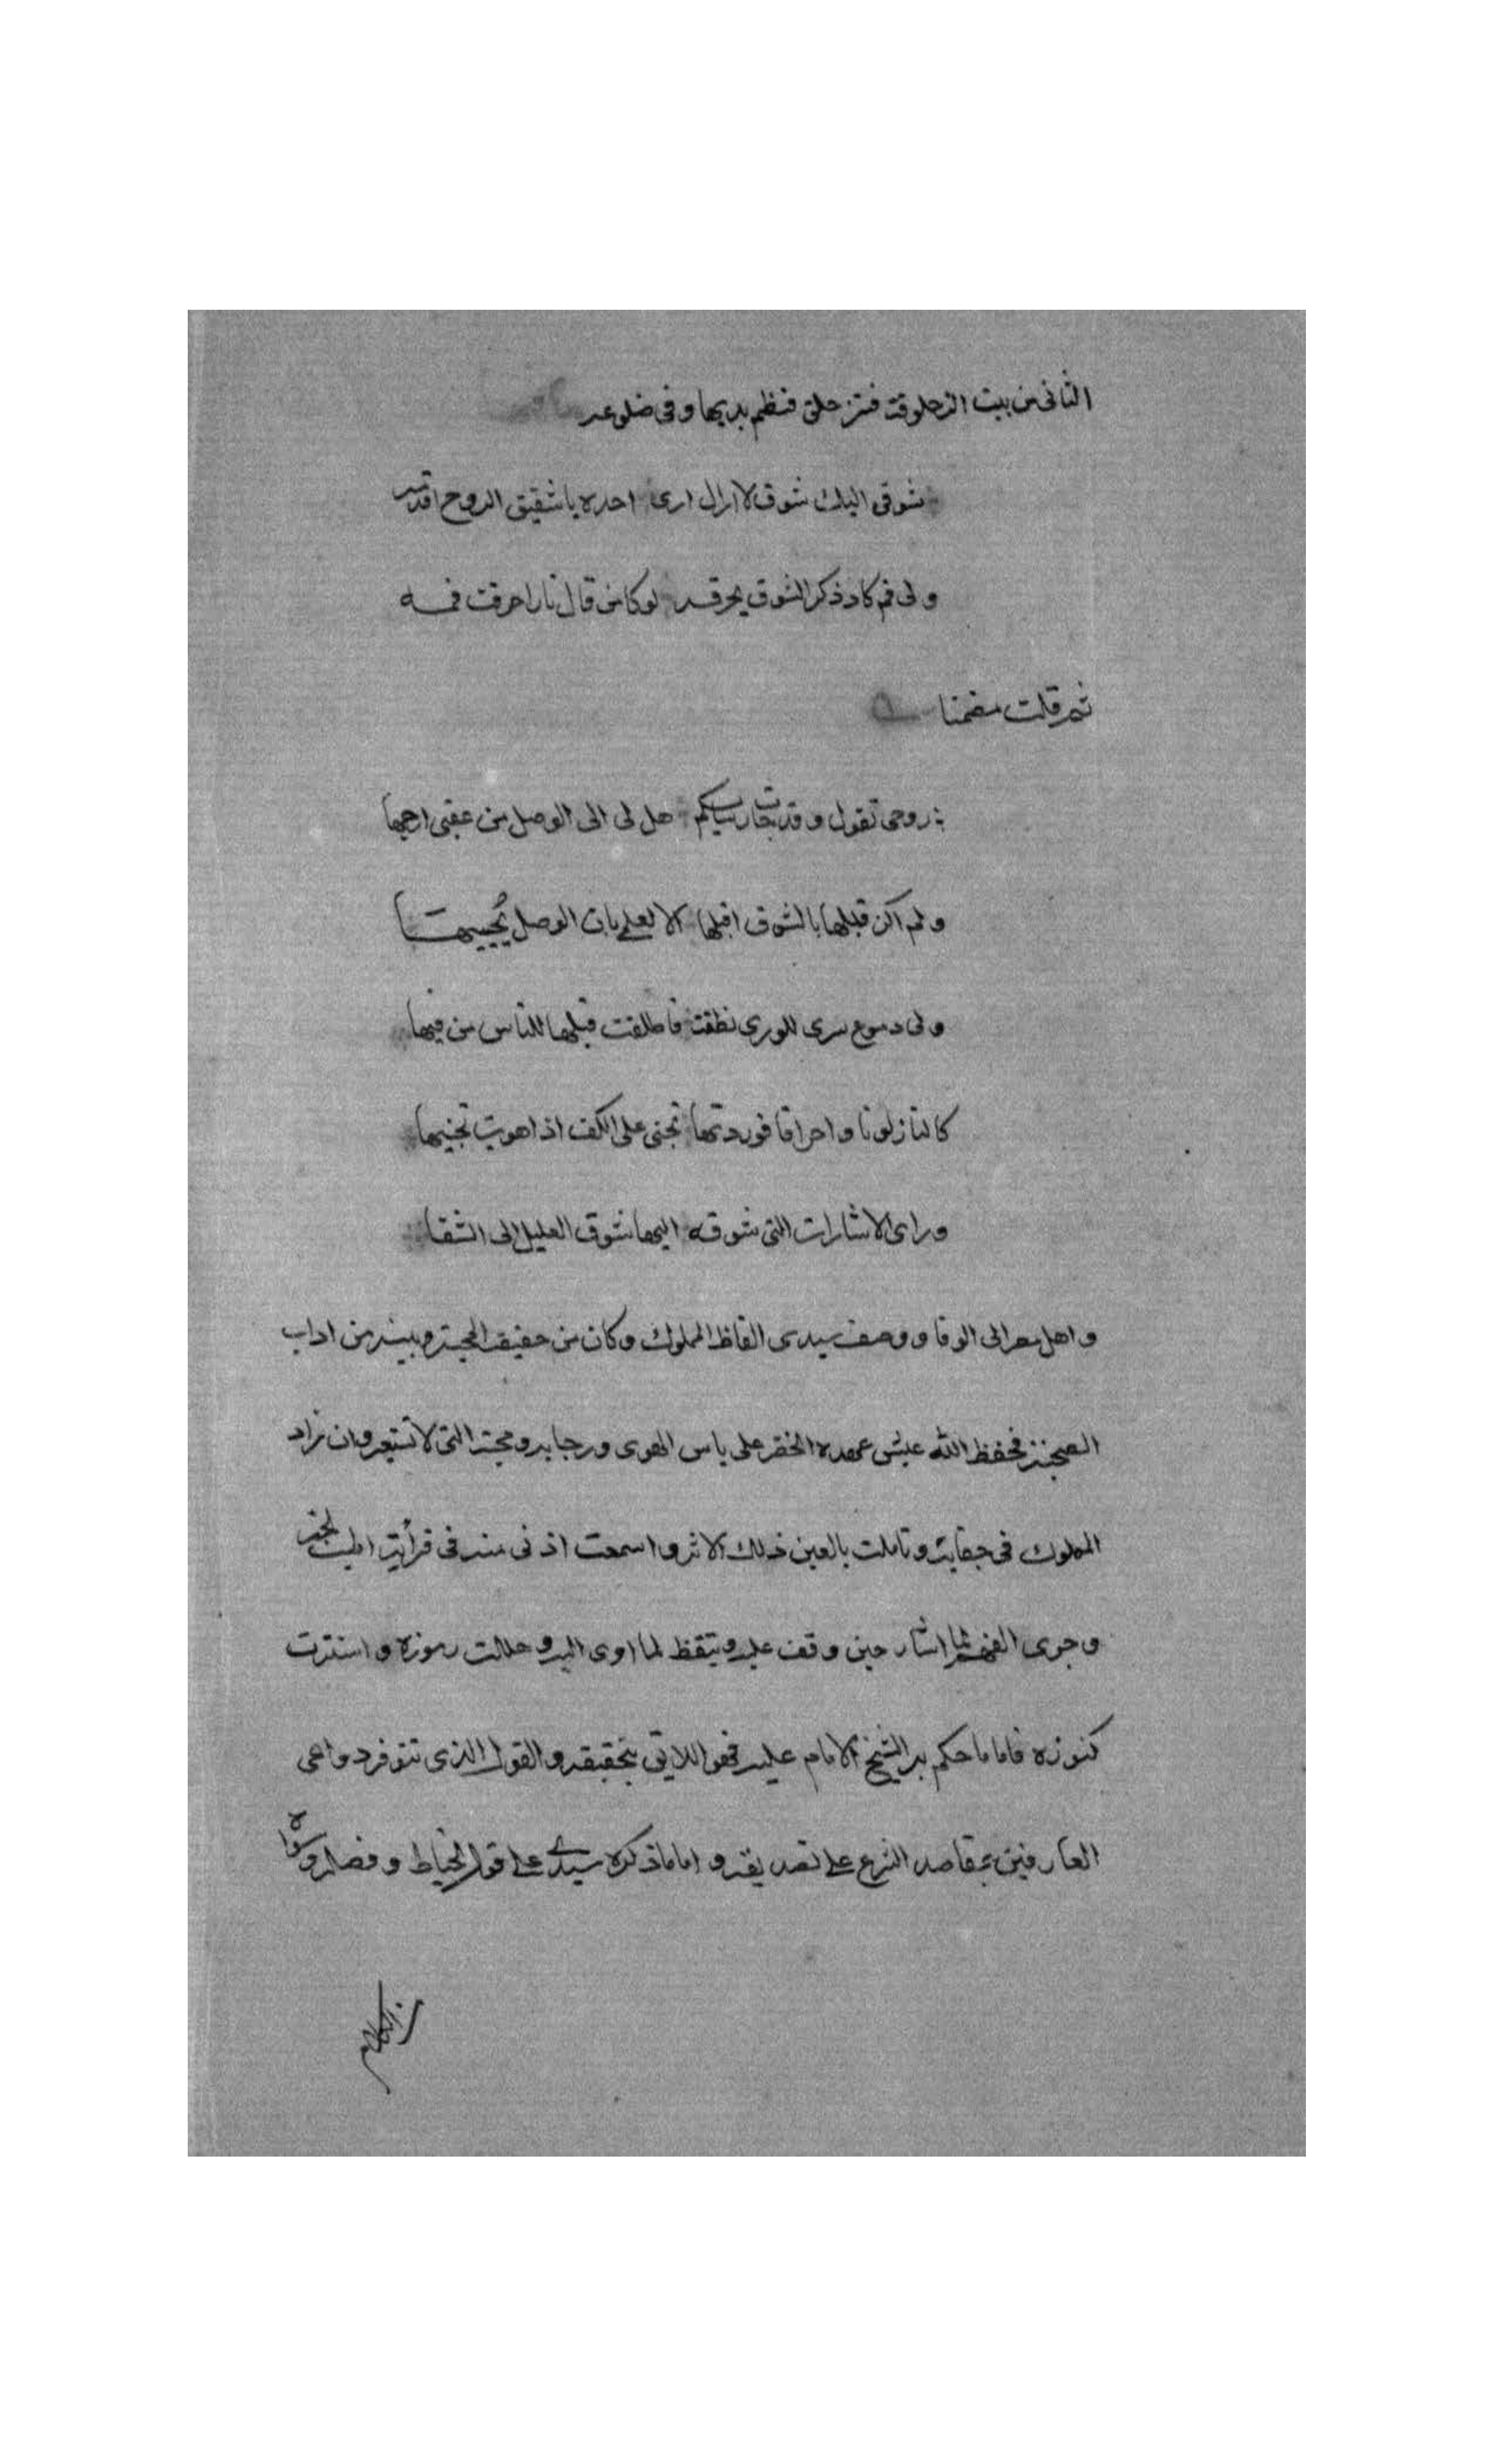 الثانى من بيت الزحلوقة فتزحلق فنظم بديها وفى ضلوعه
شوقى اليك شوق لا ازال ارى احده يا شقيق الروح اقدمه
ولى فم كاد ذكر الشوق يحرقه لو كان من قال نارا احرقت فمه
ثم قلت مضمنا
روحى تقول وقد جات رسايلكم هل لى الى الوصل من عقبى ارجيها
ولم اكن قبلها بالشوق اقبلها الا لعلى بان الوصل يحييها
ولى دموع سرى للورى نطقت فاطلقت قبلها للناس من فيها
كالنار لونا واحراقا فوردتها تجنى على الكف اذا هويت تجنيها
وراى الاشارات التى شوقه اليها شوق العليل الى الشفا
واهل الى الوفا ووصف سيدى الفاظ المملوك وكان من حقيقة المحبة وبينه من اداب
الصحبة فحفظ الله عيش عهده الخضر على ياس الهوى ورجايه ومحبته التى لا تستعير وان زاد
المملوك فى جفايه وتاملت بالعين ذلك الاثر واسمعت اذنى منه فى قرأته اطيب الخبر
وجرى الفهم لما اشار حين وقف عليه وتيقظ لما اوى اليه وحللت رموزه واستترت
كنوزه فاما ما حكم به الشيخ الامام عليه فهو اللايق بتحقيقه والقول الذى تتوفر دواعى
العارفين بمقاصد الشرع على تصديقه واما ما ذكره سيدى على قول الخياط وفصله وسواه
من الكلام